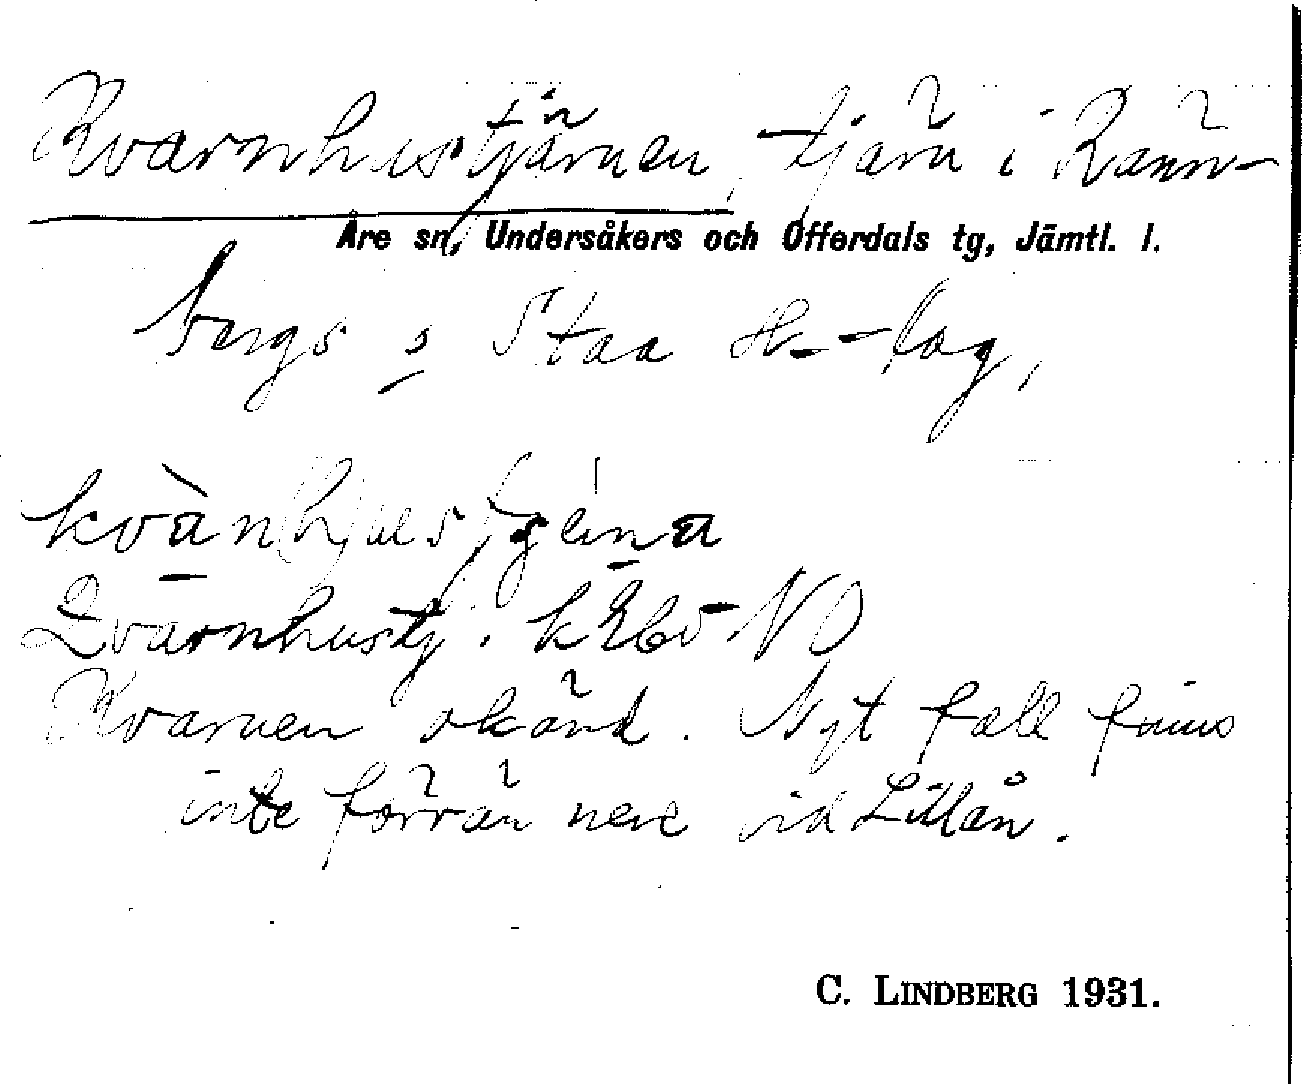 Kvarnhustjärnen, tjärn iRänn-
Åre sn, Undersåkers och Offerdals tg, Jämtl. l.
bergs o Staa sk-lag,
kvàn(h)us
Qvarnhustj. NO
Kvarnen okänd. Nyt fall finns
inte förrän nere vid Lillån.
C. LINDBERG 1931.